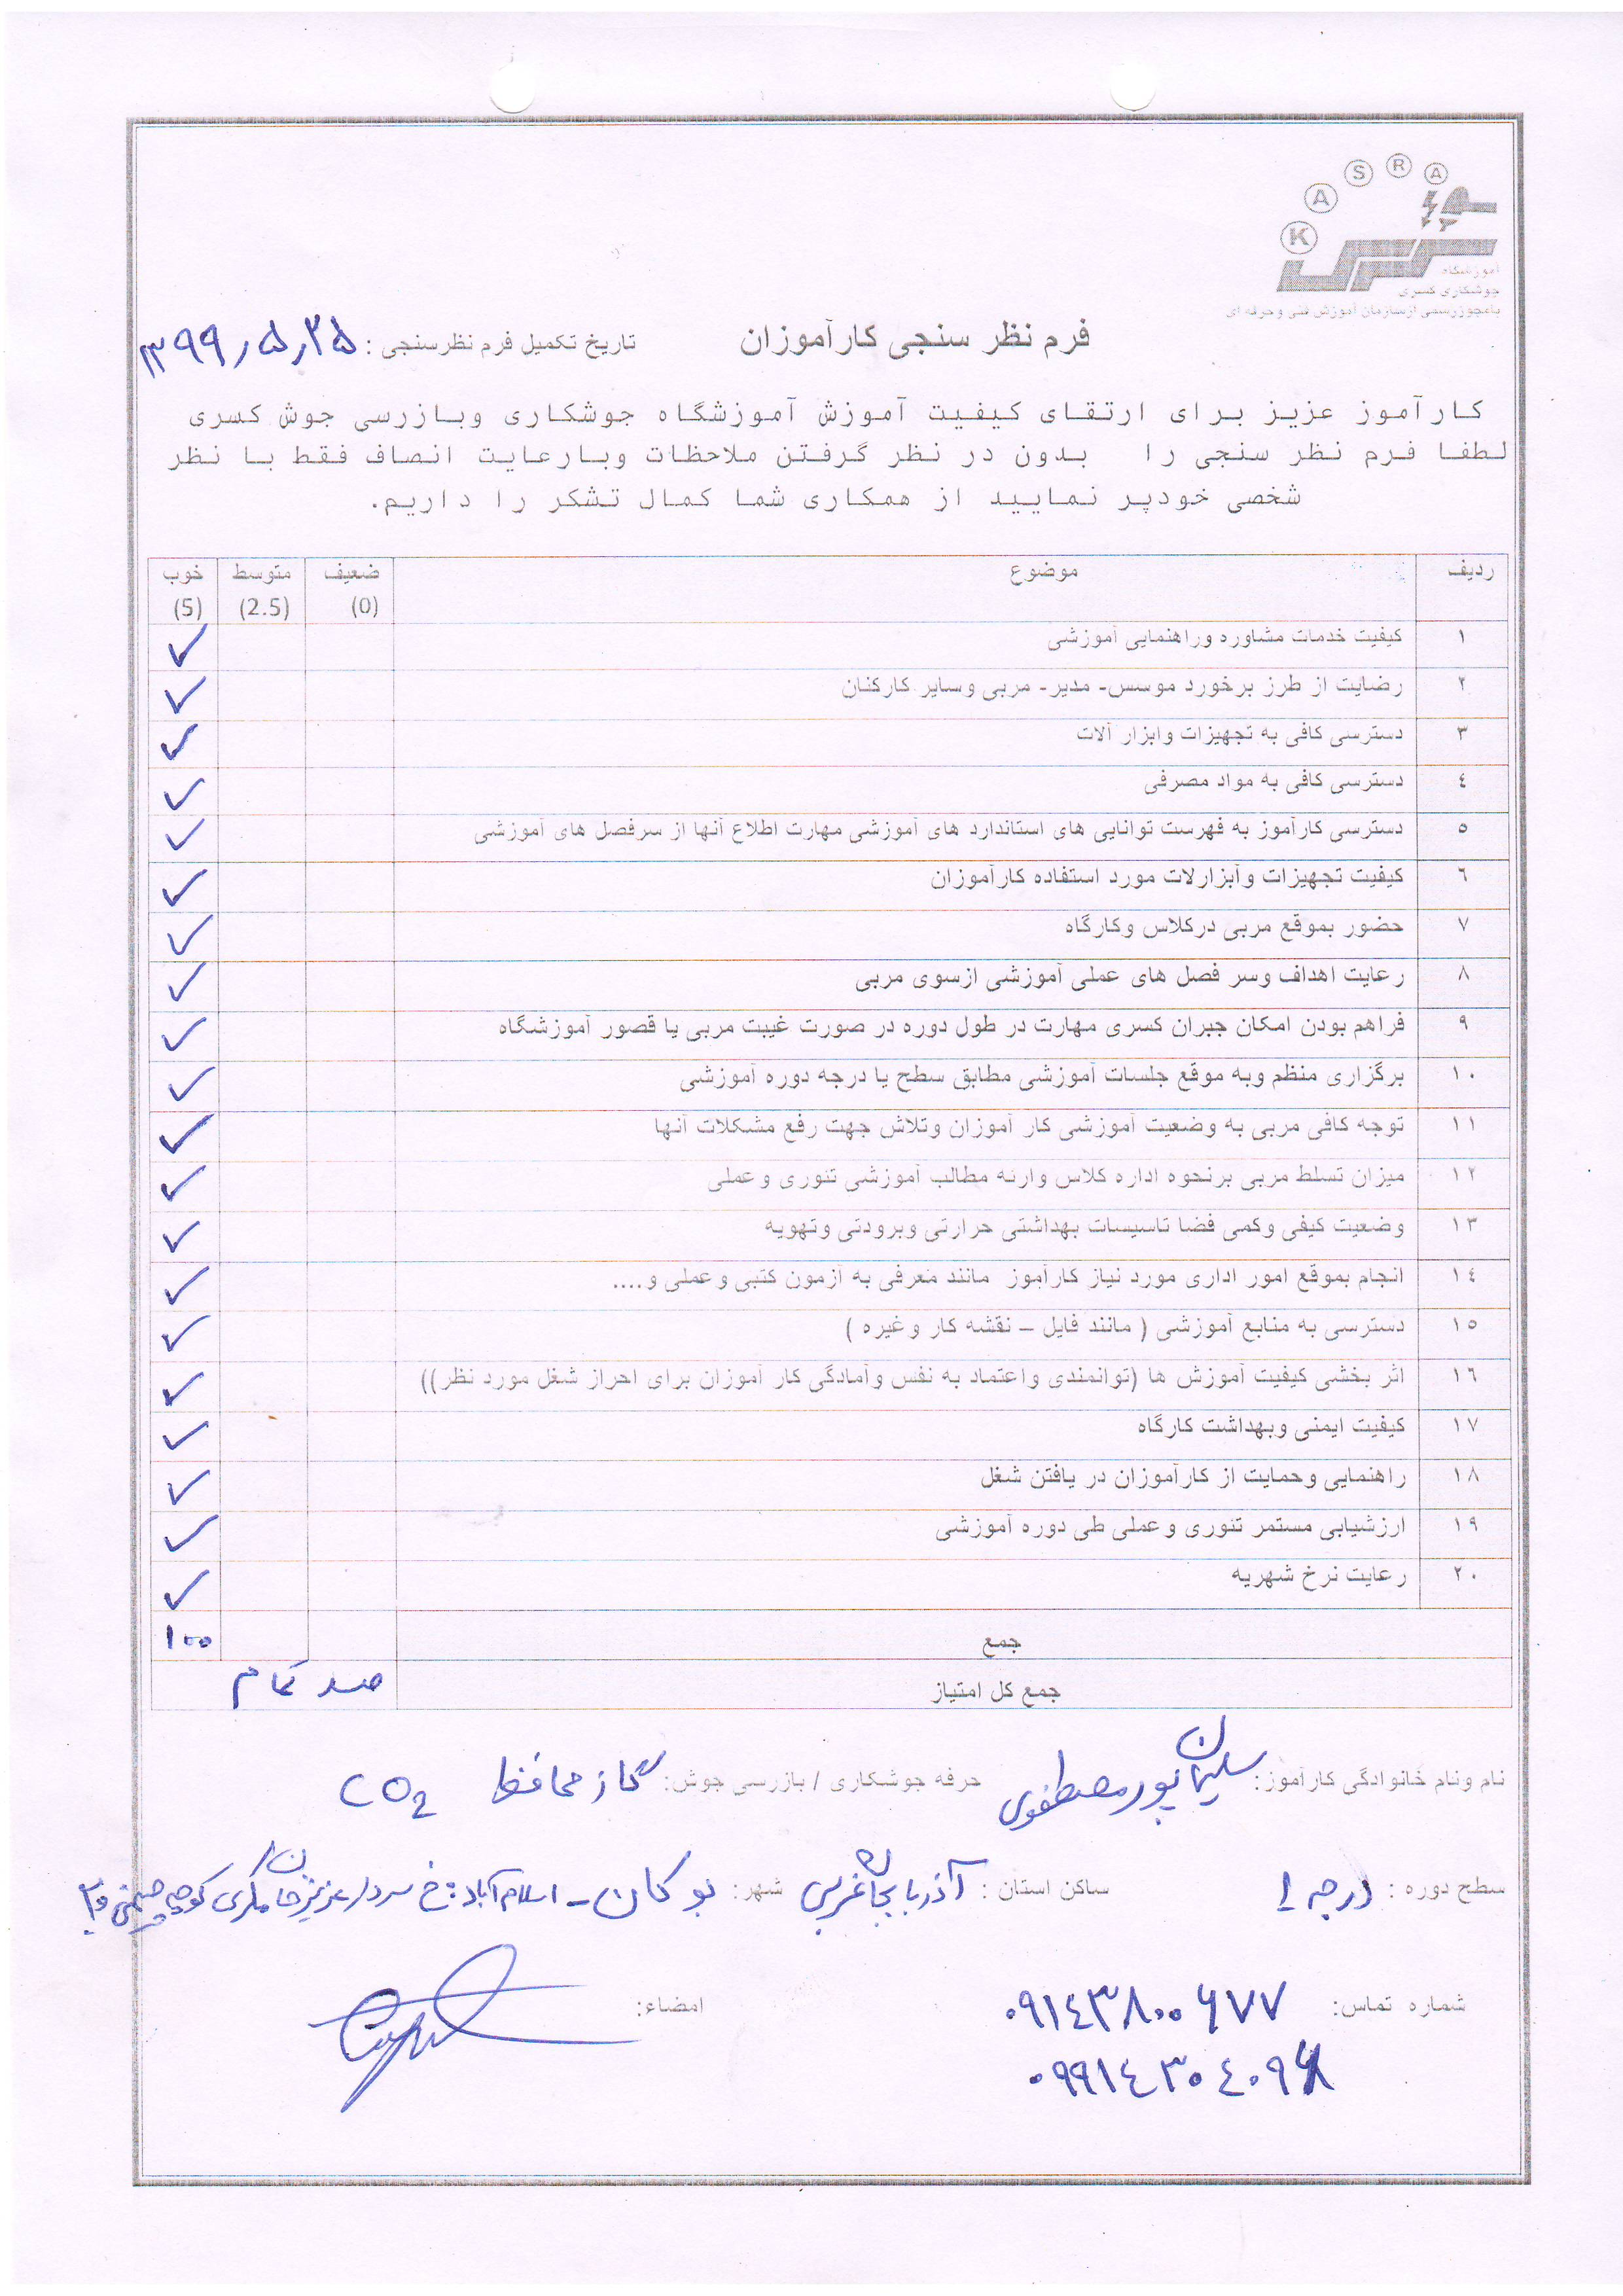 K A S R A
آموزشگاه
جوشکاری کسری
بامجوزرسمی ازسازمان آموزش فنی وحرفه ای
فرم نظر سنجی کارآموزان
تاریخ تکمیل فرم نظرسنجی : ۱۳۹۹٫۵٫۲۵
کارآموز عزیز برای ارتقای کیفیت آموزش آموزشگاه جوشکاری وبازرسی جوش کسری
لطفا فرم نظر سنجی را بدون در نظر گرفتن ملاحظات وبارعایت انصاف فقط با نظر
شخصی خودپر نمایید از همکاری شما کمال تشکر را داریم.
ردیف موضوع ضعیف (0) متوسط (2.5) خوب (5)
۱ کیفیت خدمات مشاوره وراهنمایی آموزشی ✓
۲ رضایت از طرز برخورد موسس- مدیر- مربی وسایر کارکنان ✓
۳ دسترسی کافی به تجهیزات وابزار آلات ✓
٤ دسترسی کافی به مواد مصرفی ✓
٥ دسترسی کارآموز به فهرست توانایی های استاندارد های آموزشی مهارت اطلاع آنها از سرفصل های آموزشی ✓
٦ کیفیت تجهیزات وآبزارلات مورد استفاده کارآموزان ✓
۷ حضور بموقع مربی درکلاس وکارگاه ✓
۸ رعایت اهداف وسر فصل های عملی آموزشی ازسوی مربی ✓
۹ فراهم بودن امکان جبران کسری مهارت در طول دوره در صورت غیبت مربی یا قصور آموزشگاه ✓
۱۰ برگزاری منظم وبه موقع جلسات آموزشی مطابق سطح یا درجه دوره آموزشی ✓
۱۱ توجه کافی مربی به وضعیت آموزشی کار آموزان وتلاش جهت رفع مشکلات آنها ✓
۱۲ میزان تسلط مربی برنحوه اداره کلاس وارئه مطالب آموزشی تئوری وعملی ✓
۱۳ وضعیت کیفی وکمی فضا تاسیسات بهداشتی حرارتی وبرودتی وتهویه ✓
۱٤ انجام بموقع امور اداری مورد نیاز کارآموز مانند معرفی به آزمون کتبی وعملی و.... ✓
۱٥ دسترسی به منابع آموزشی ( مانند فایل – نقشه کار وغیره ) ✓
۱٦ اثر بخشی کیفیت آموزش ها (توانمندی واعتماد به نفس وآمادگی کار آموزان برای احراز شغل مورد نظر)) ✓
۱۷ کیفیت ایمنی وبهداشت کارگاه ✓
۱۸ راهنمایی وحمایت از کارآموزان در یافتن شغل ✓
۱۹ ارزشیابی مستمر تئوری وعملی طی دوره آموزشی ✓
۲۰ رعایت نرخ شهریه ✓
جمع ۱۰۰
جمع کل امتیاز صد تمام
نام ونام خانوادگی کارآموز: سلیمان پور مصطفوی حرفه جوشکاری / بازرسی جوش: گاز محافظ CO2
سطح دوره : درجه ۱ ساکن استان : آذربایجان غربی شهر: بوکان – اسلام آباد : خ سردار عزیزخان مکری کوچه
شماره تماس: ۰۹۱٤۳۸۰۰۶۷۷ امضاء: